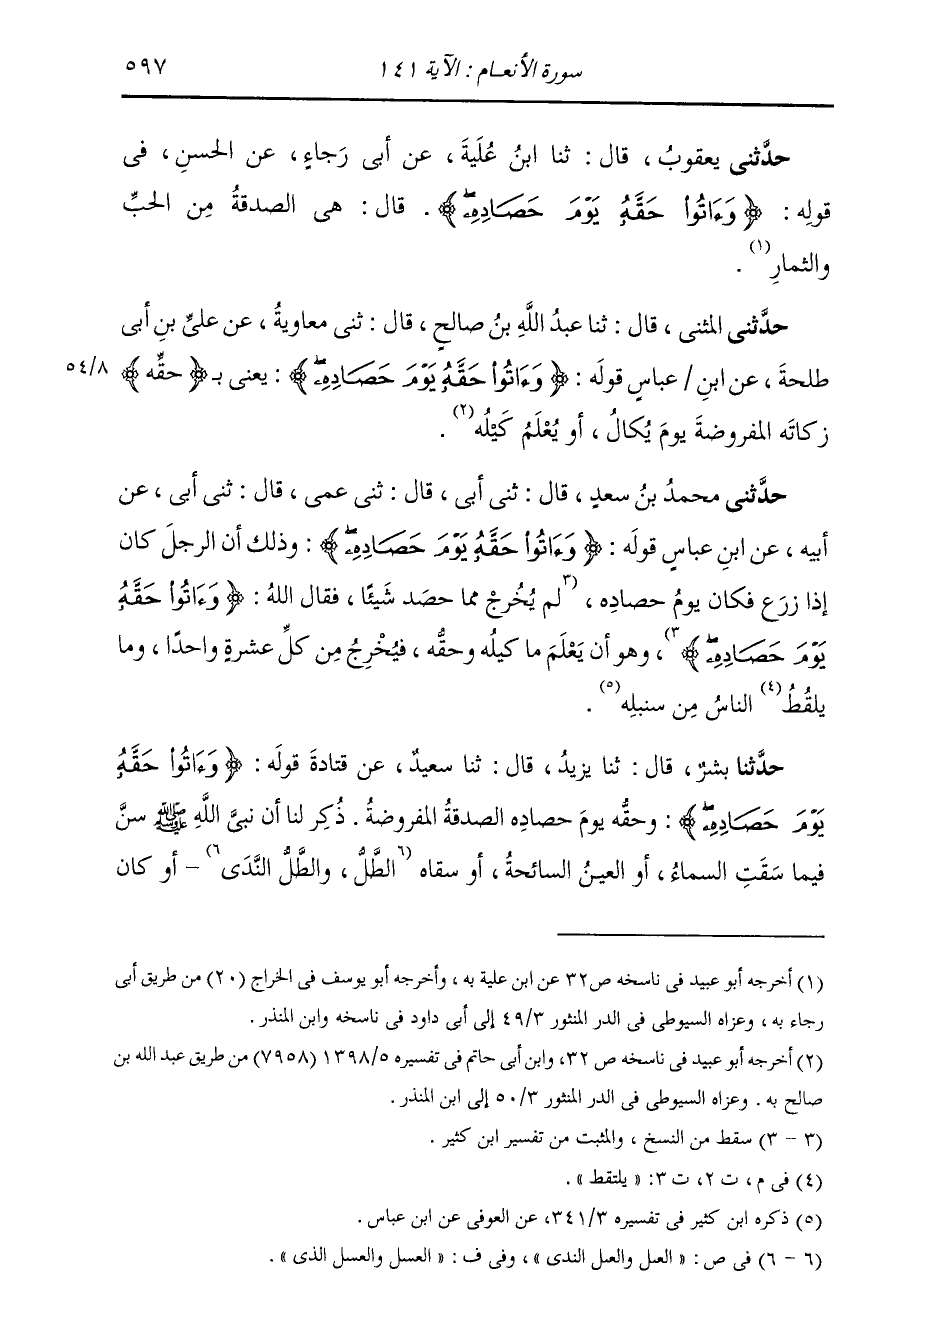 سورة الأنعام : الآية ١٤١ ٥٩٧
حدَّثنى يعقوبُ ، قال : ثنا ابنُ عُلَيةَ ، عن أبى رَجاءٍ ، عن الحسنِ ، فى
قولِه : ﴿ وَءَاتُوا۟ حَقَّهُۥ يَوْمَ حَصَادِهِۦۖ ﴾ . قال : هى الصدقةُ مِن الحَبِّ
والثمارِ (١) .
حدَّثنى المثنى ، قال : ثنا عبدُ اللَّهِ بنُ صالحٍ ، قال : ثنى معاويةُ ، عن علىِّ بنِ أبى
طلحةَ ، عن ابنِ / عباسٍ قولَه : ﴿ وَءَاتُوا۟ حَقَّهُۥ يَوْمَ حَصَادِهِۦۖ ﴾ : يعنى بـ ﴿ حقَّه ﴾ ٥٤/٨
زكاتَه المفروضةَ يومَ يُكالُ ، أو يُعْلَمُ كَيْلُه (٢) .
حدَّثنى محمدُ بنُ سعدٍ ، قال : ثنى أبى ، قال : ثنى عمى ، قال : ثنى أبى ، عن
أبيه ، عن ابنِ عباسٍ قولَه : ﴿ وَءَاتُوا۟ حَقَّهُۥ يَوْمَ حَصَادِهِۦۖ ﴾ : وذلك أن الرجلَ كان
إذا زرَع فكان يومُ حصادِه ، (٣ لم يُخرِجْ مما حصَد شَيئًا ، فقال اللهُ : ﴿ وَءَاتُوا۟ حَقَّهُۥ
يَوْمَ حَصَادِهِۦۖ ﴾ ٣) ، وهو أن يَعْلَمَ ما كيلُه وحقُّه ، فيُخْرِجُ مِن كلِّ عشرةٍ واحدًا ، وما
يلقُطُ (٤) الناسُ مِن سنبلِه (٥) .
حدَّثنا بشرٌ ، قال : ثنا يزيدُ ، قال : ثنا سعيدٌ ، عن قتادةَ قولَه : ﴿ وَءَاتُوا۟ حَقَّهُۥ
يَوْمَ حَصَادِهِۦۖ ﴾ : وحقُّه يومَ حصادِه الصدقةُ المفروضةُ . ذُكِر لنا أن نبىَّ اللَّهِ ﷺ سنَّ
فيما سَقَتِ السماءُ ، أو العينُ السائحةُ ، أو سقاه (٦ الطَّلُّ ، والطَّلُّ النَّدَى ٦) - أو كان
(١) أخرجه أبو عبيد فى ناسخه ص٣٢ عن ابن علية به ، وأخرجه أبو يوسف فى الخراج (٢٠) من طريق أبى
رجاء به ، وعزاه السيوطى فى الدر المنثور ٤٩/٣ إلى أبى داود فى ناسخه وابن المنذر .
(٢) أخرجه أبو عبيد فى ناسخه ص ٣٢، وابن أبى حاتم فى تفسيره ١٣٩٨/٥ (٧٩٥٨) من طريق عبد الله بن
صالح به . وعزاه السيوطى فى الدر المنثور ٥٠/٣ إلى ابن المنذر .
(٣ - ٣) سقط من النسخ ، والمثبت من تفسير ابن كثير .
(٤) فى م ، ت ٢، ت ٣: « يلتقط » .
(٥) ذكره ابن كثير فى تفسيره ٣٤١/٣، عن العوفى عن ابن عباس .
(٦ - ٦) فى ص : « العىل والعىل الندى » ، وفى ف : « العسل والعسل الذى » .